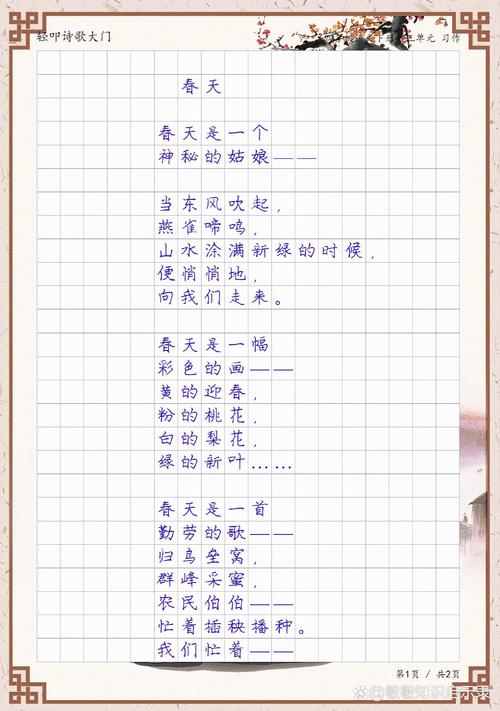 轻叩诗歌大门
单元 习作
春天
春天是一个
神秘的姑娘——
当东风吹起，
燕雀啼鸣，
山水涂满新绿的时候，
便悄悄地，
向我们走来。
春天是一幅
彩色的画——
黄的迎春，
粉的桃花，
白的梨花，
绿的新叶……
春天是一首
勤劳的歌——
归鸟垒窝，
群峰采蜜，
农民伯伯——
忙着插秧播种。
我们忙着——
第1页 / 共2页